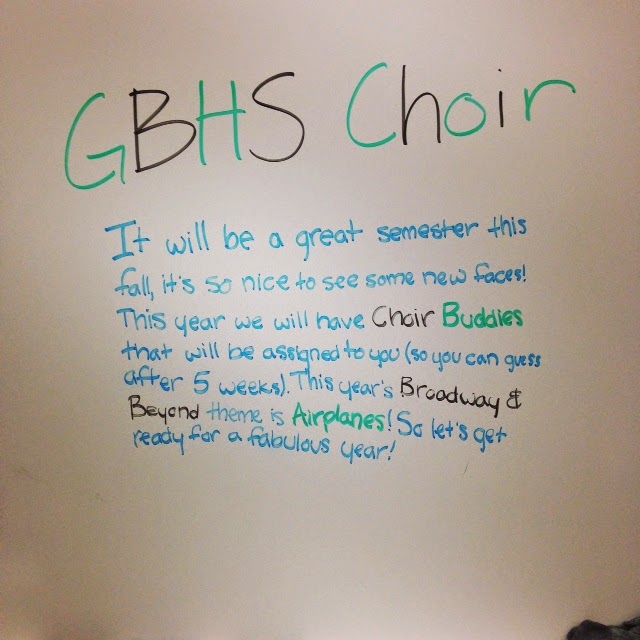 GBHS Choir
It will be a great semester this
fall, it's so nice to see some new faces!
This year we will have Choir Buddies
that will be assigned to you (so you can guess
after 5 weeks). This year's Broadway &
Beyond theme is Airplanes! So let's get
ready for a fabulous year!